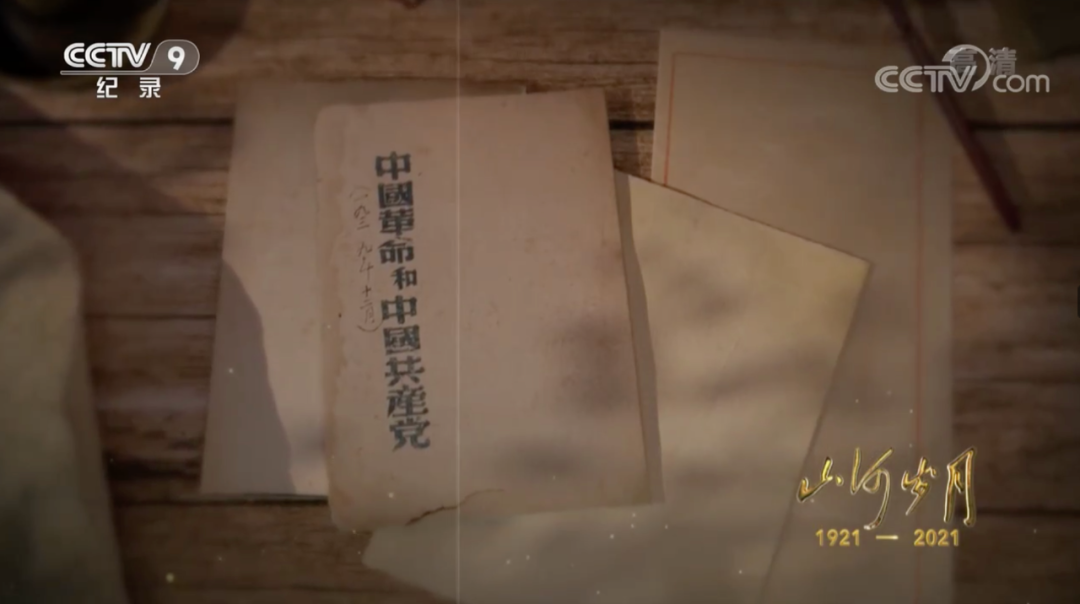 CCTV 9
纪录
高清
CCTV.com
中國革命和中國共産党
(一九三九年十二月)
山河岁月
1921 — 2021